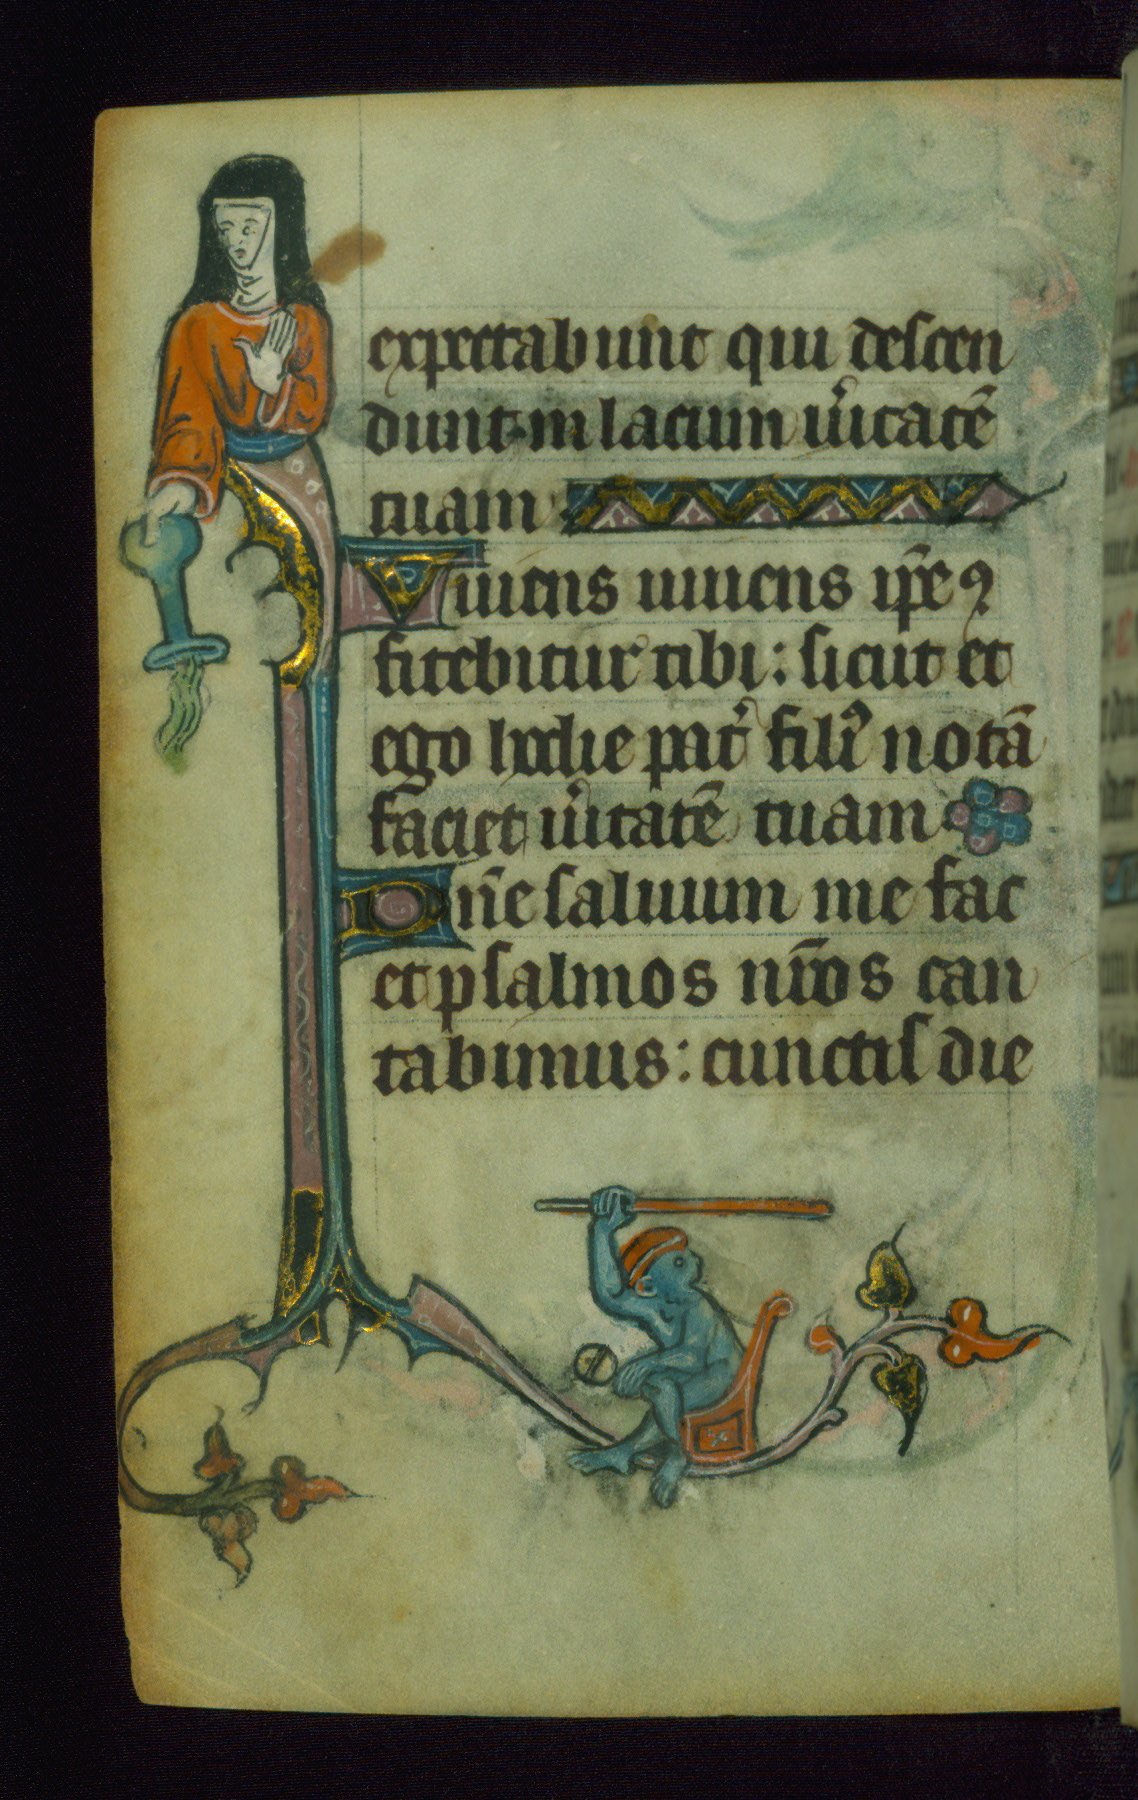 expectabunt qui descen
dunt in lacum ũitatẽ
tuam
Viuens uiuens ip̃e ꝯ
fitebitur tibi: sicut et
ego hodie pat̃ filiꝰ notã
faciet ũitatẽ tuam
Dñe saluum me fac
et psalmos nr̃os can
tabimus: cunctis die